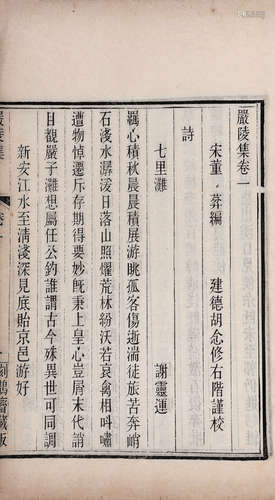 嚴陵集卷一
宋董 棻編 建德胡念修右階謹校
詩
七里灘 謝靈運
羈心積秋晨晨積展游眺孤客傷逝湍徒旅苦奔峭
石淺水潺湲日落山照曜荒林紛沃若哀禽相叫嘯
遭物悼遷斥存期得要妙旣秉上皇心豈屑末代誚
目覩嚴子瀨想屬任公釣誰謂古今殊異世可同調
新安江水至清淺深見底貽京邑游好
嚴陵集 卷一
刻鵠齋藏版